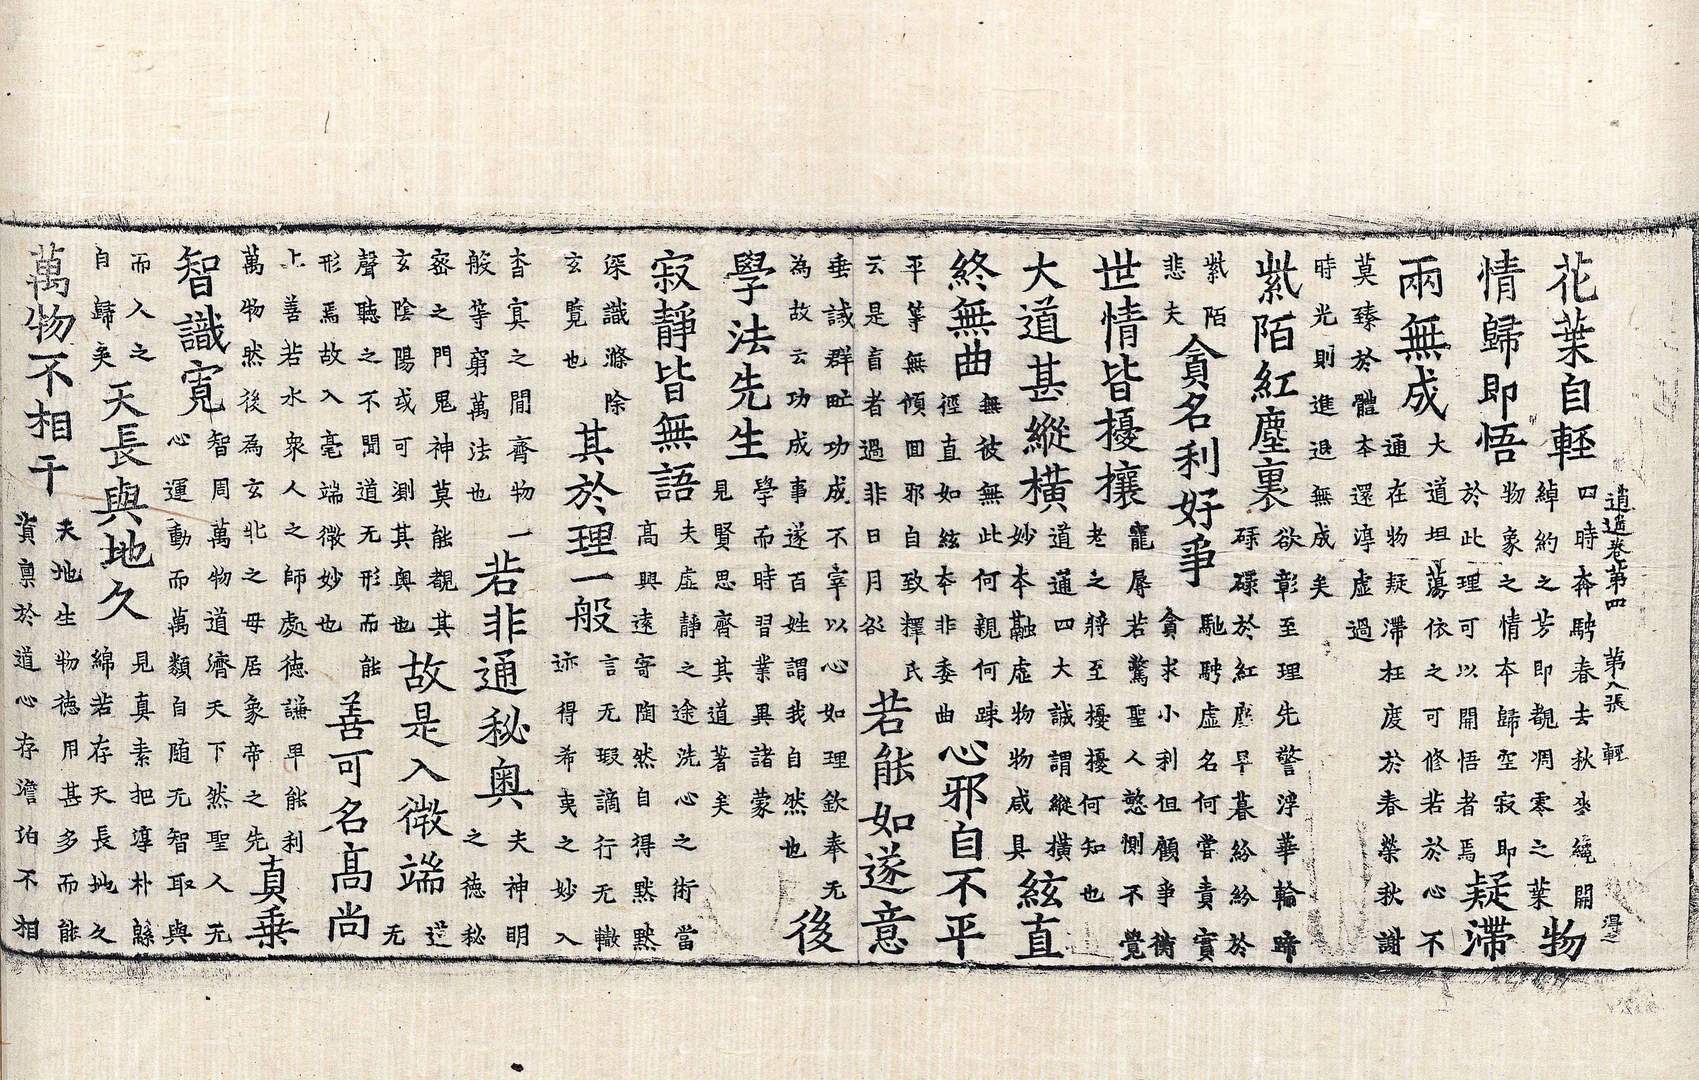 逍遙卷第四 第八張 輕 得之
花葉自輕
四時奔騁春去秋來纔開
綽約之芳即覩凋零之葉
物
情歸即悟
物象之情本歸空寂即
於此理可以開悟者焉
疑滯
兩無成
大道坦蕩依之可修若於心不
通在物疑滯枉度於春榮秋謝
莫臻於體本還淳虛過
時光則進退無成矣
紫陌紅塵裏
欲彰至理先警浮華輪蹄
碌碌於紅塵早暮紛紛於
紫陌
悲夫
貪名利好爭
馳騁虛名何嘗責實
貪求小利但顧爭衡
世情皆擾攘
寵辱若驚聖人慜惻不覺
老之將至擾擾何知也
大道甚縱橫
道通四大誠謂縱橫
妙本融虛物物咸具
絃直
終無曲
無彼無此何親何疎
徑直如絃本非委曲
心邪自不平
平等無傾回邪自致釋氏
云是盲者過非日月咎
若能如遂意
垂誡群甿功成不宰以心如理欽奉无
為故云功成事遂百姓謂我自然也
後
學法先生
學而時習業異諸蒙
見賢思齊其道著矣
寂靜皆無語
夫虛靜之途洗心之術當
高興遠寄陶然自得默默
深識滌除
玄覽也
其於理一般
言无瑕謫行无轍
迹得希夷之妙入
杳冥之間齊物一
般等窮萬法也
若非通秘奧
夫神明
之德秘
密之門鬼神莫能覩其
玄陰陽或可測其奧也
故是入微端
道
无
聲聽之不聞道无形而能
形焉故入毫端微妙也
善可名高尚
上善若水衆人之師處德謙卑能利
萬物然後為玄牝之母居象帝之先
真乘
智識寬
智周萬物道濟天下然聖人无
心運動而萬類自随无智取與
而入之
自歸矣
天長與地久
見真素把淳朴緜
綿若存天長地久
萬物不相干
夫地生物德用甚多而能
資稟於道心存澹泊不相